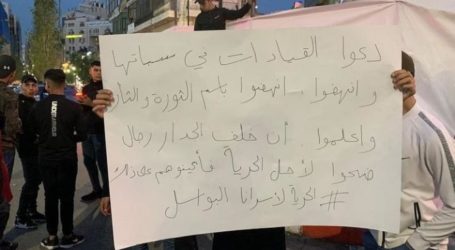 دعوا القيادات في سباتها
وانهضوا، انهضوا باسم الثورة والثأر
واعلموا، أن خلف الجدار رجال
ضحوا لأجل الحرية فأعينوهم على ذلك
#الحرية لأسرانا البواسل
UNDER ARMOUR